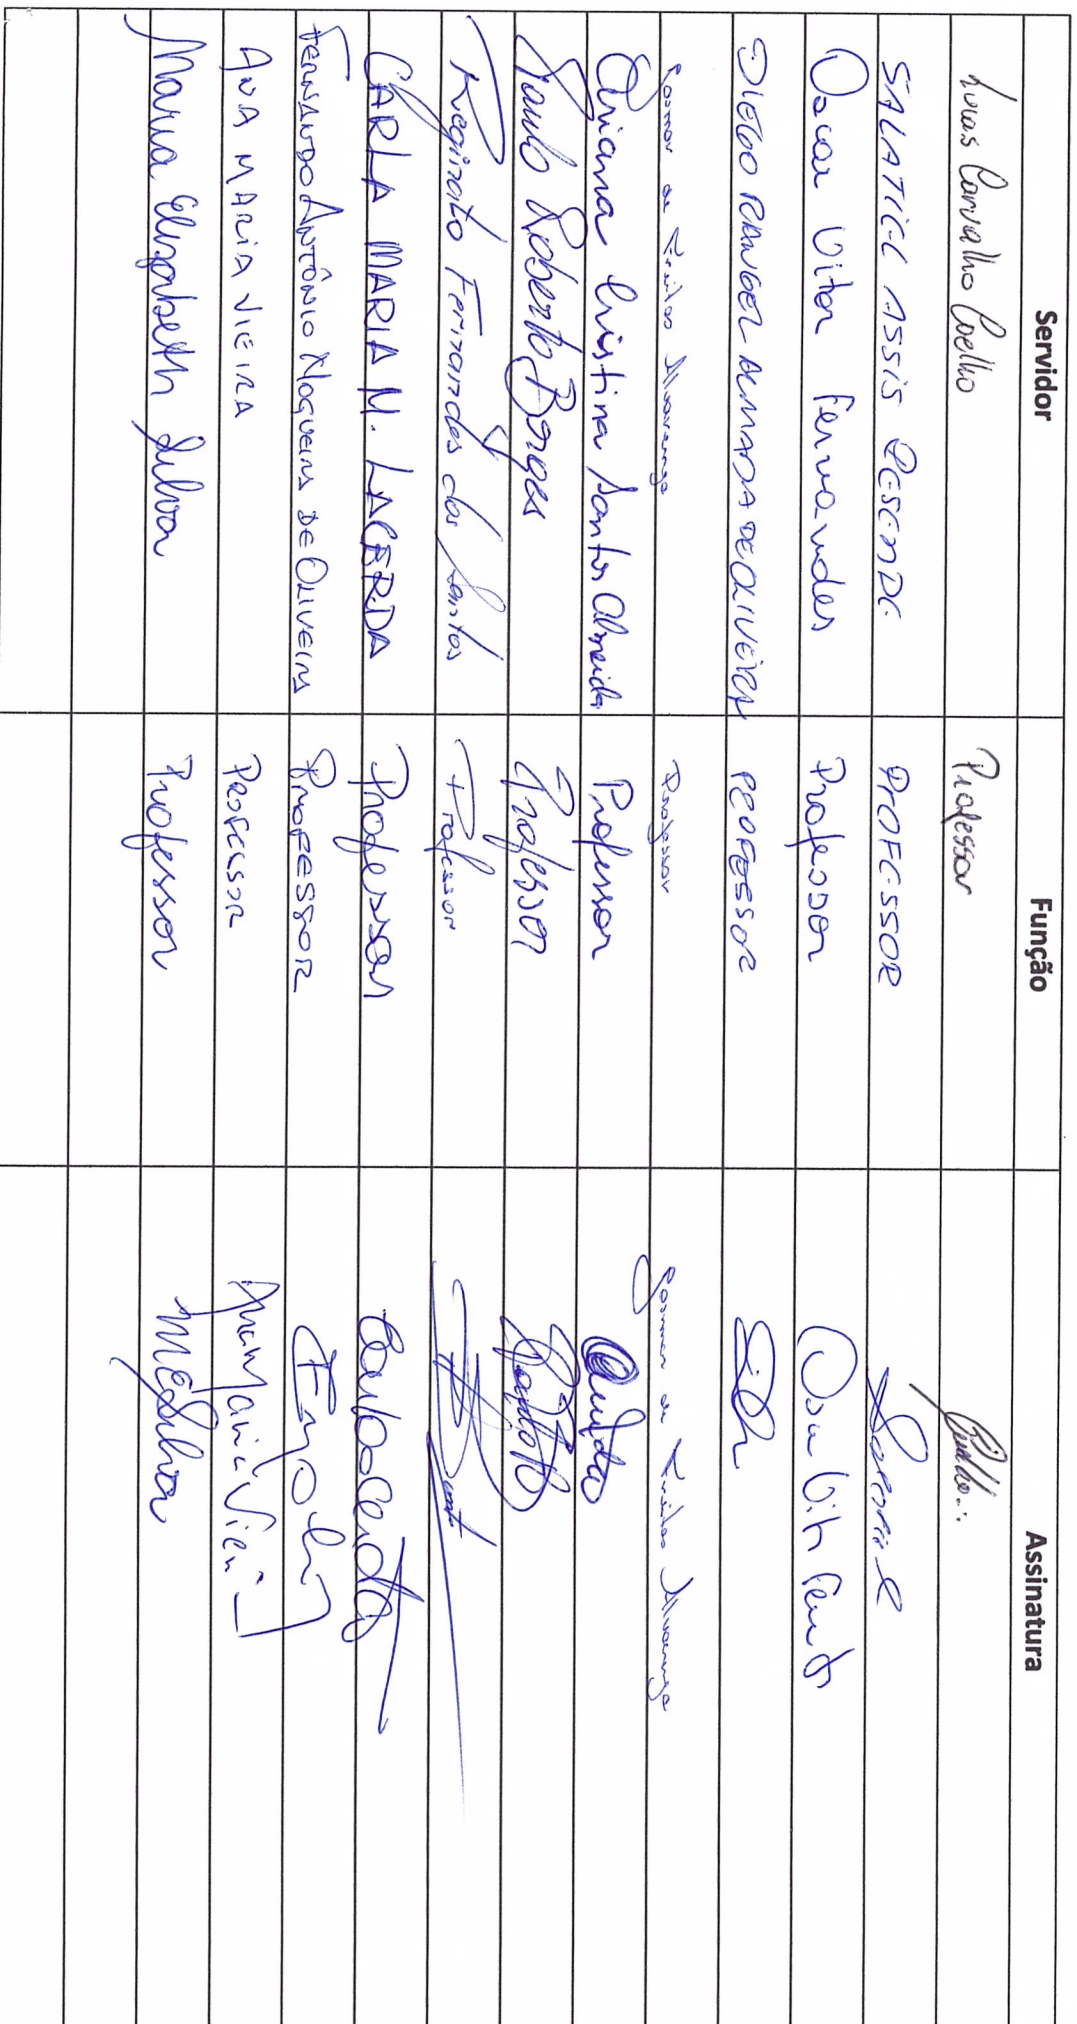 Servidor Função Assinatura
Lucas Carvalho Coelho Professor Coelho...
SALATIEL ASSIS RESENDE PROFESSOR
Oscar Vitor Fernandes Professor Oscar Vitor
DIEGO RANGEL ALMADA DE OLIVEIRA PROFESSOR
Rosmar de Freitas Alvarenga Professor Rosmar de Freitas Alvarenga
Ariana Cristina Santos Almeida Professor
Paulo Roberto Borges Professor
Reginato Fernandes dos Santos Professor
CARLA MARIA N. LACERDA Professor
FERNANDO ANTÔNIO NOGUEIRA DE OLIVEIRA PROFESSOR
ANA MARIA VIEIRA PROFESSOR Ana Maria Vieira
Maria Elizabeth Silva Professor MESilva